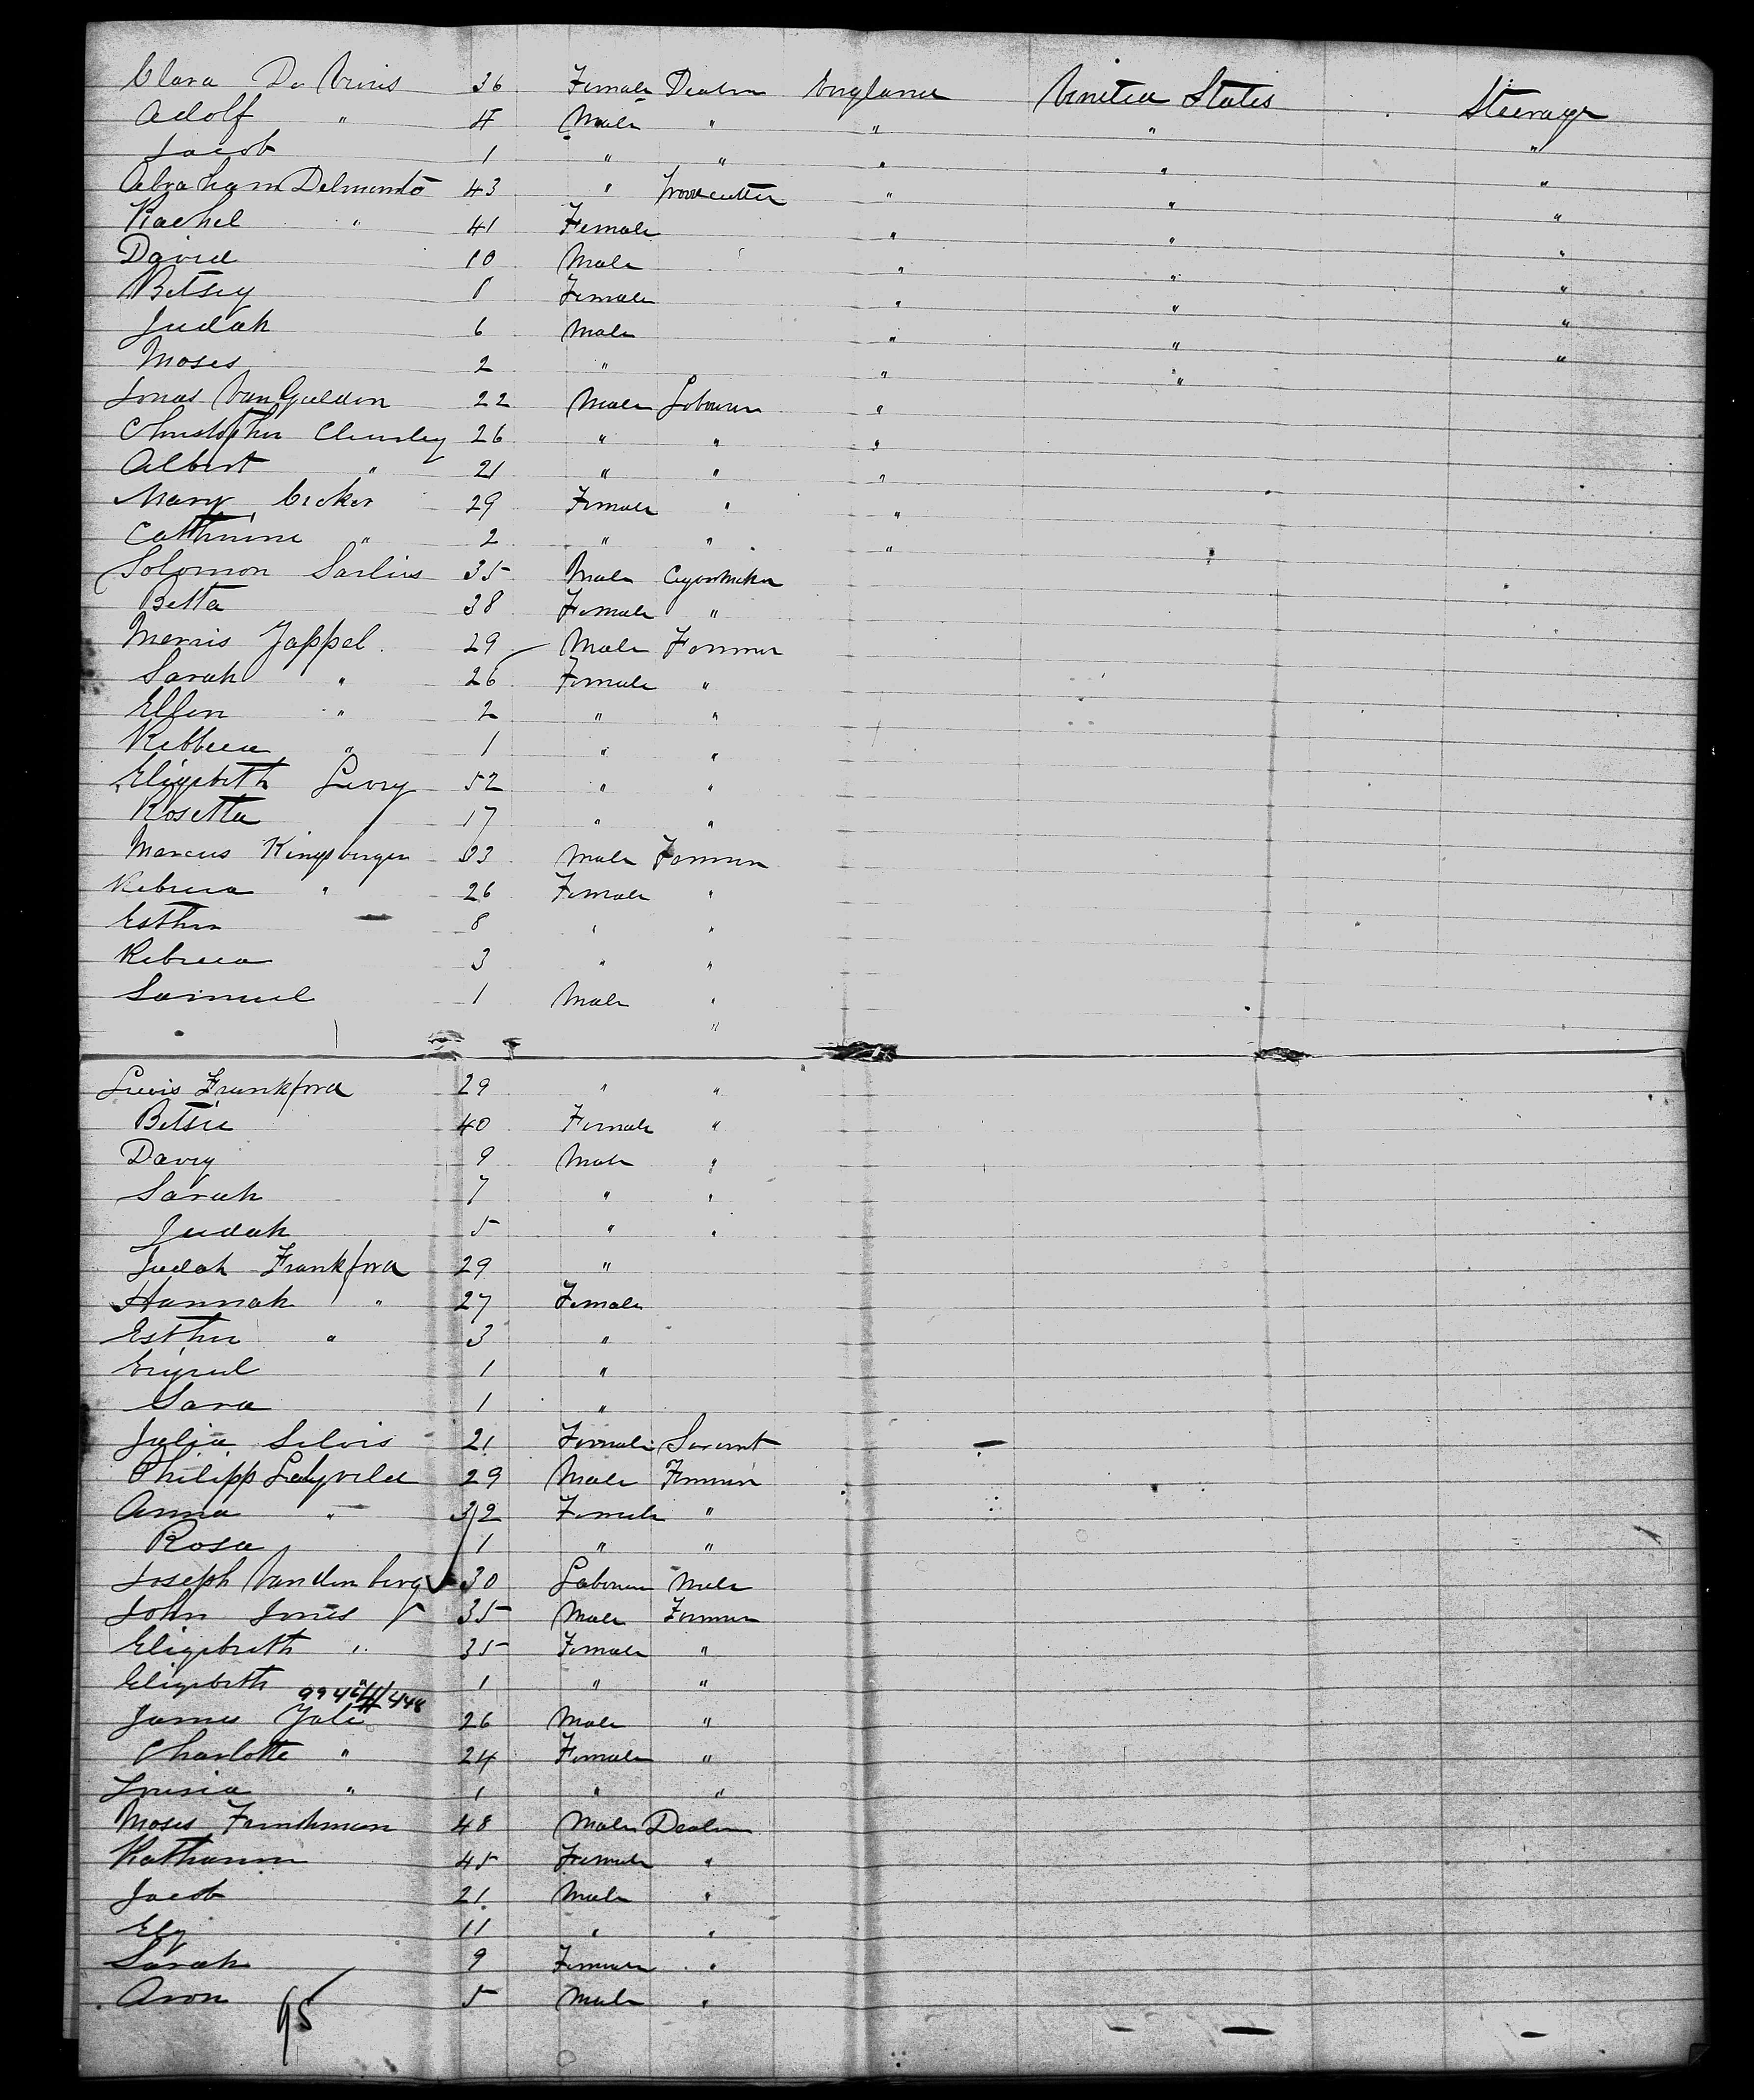 Clara De Vries 36 Female Dealer England United States Steerage
Adolf " 4 Male " " " "
Jacob 1 " " " " "
Abraham Delmonto 43 " " " "
Rachel " 41 Female " " "
David 10 Male " " "
Betsey Female " " "
Judah 6 Male " " "
Moses 2 " " "
Jonas Van Guldon 22 Male Labourer "
Christopher 26 " " "
Albert " 21 " " "
Mary 29 Female " "
Cattherine " 2 " " "
Solomon Sarlius 35 Male Cigarmaker
Betta 38 Female "
Morris Jappel 29 Male Farmer
Sarah " 26 Female "
Ellen " 2 " "
Rebbecca " 1 " "
Elizabeth Levy 52 " "
Rosetta 17 " "
Marcus Kingsbergen 33 Male Farmer
Rebecca " 26 Female "
Esther 8 " "
Rebecca 3 " "
Samuel 1 Male "
"
Lewis Frankford 29 " "
Betsie 40 Female "
Davey 9 Male "
Sarah 7 " "
Judah 5 " "
Judah Frankford 29 "
Hannah " 27 Female
Esther " 3 "
1 "
Sara 1 "
Julia Selvis 21 Female Servant
Philipp Lelyveld 29 Male Farmer
Anna " 32 Female "
Rosa 1 " "
Joseph Vandenberg 30 Labourer Male
John Jones 35 Male Farmer
Elizabeth " 35 Female "
Elizabeth " 1 " "
James Yale 26 Male "
Charlotte " 24 Female "
Louisa " 1 " "
Moses 48 Male Dealer
Katharina 45 Female "
Jacob 21 Male "
Ely 11 " "
Sarah 9 Female "
Aron 5 Male "
95